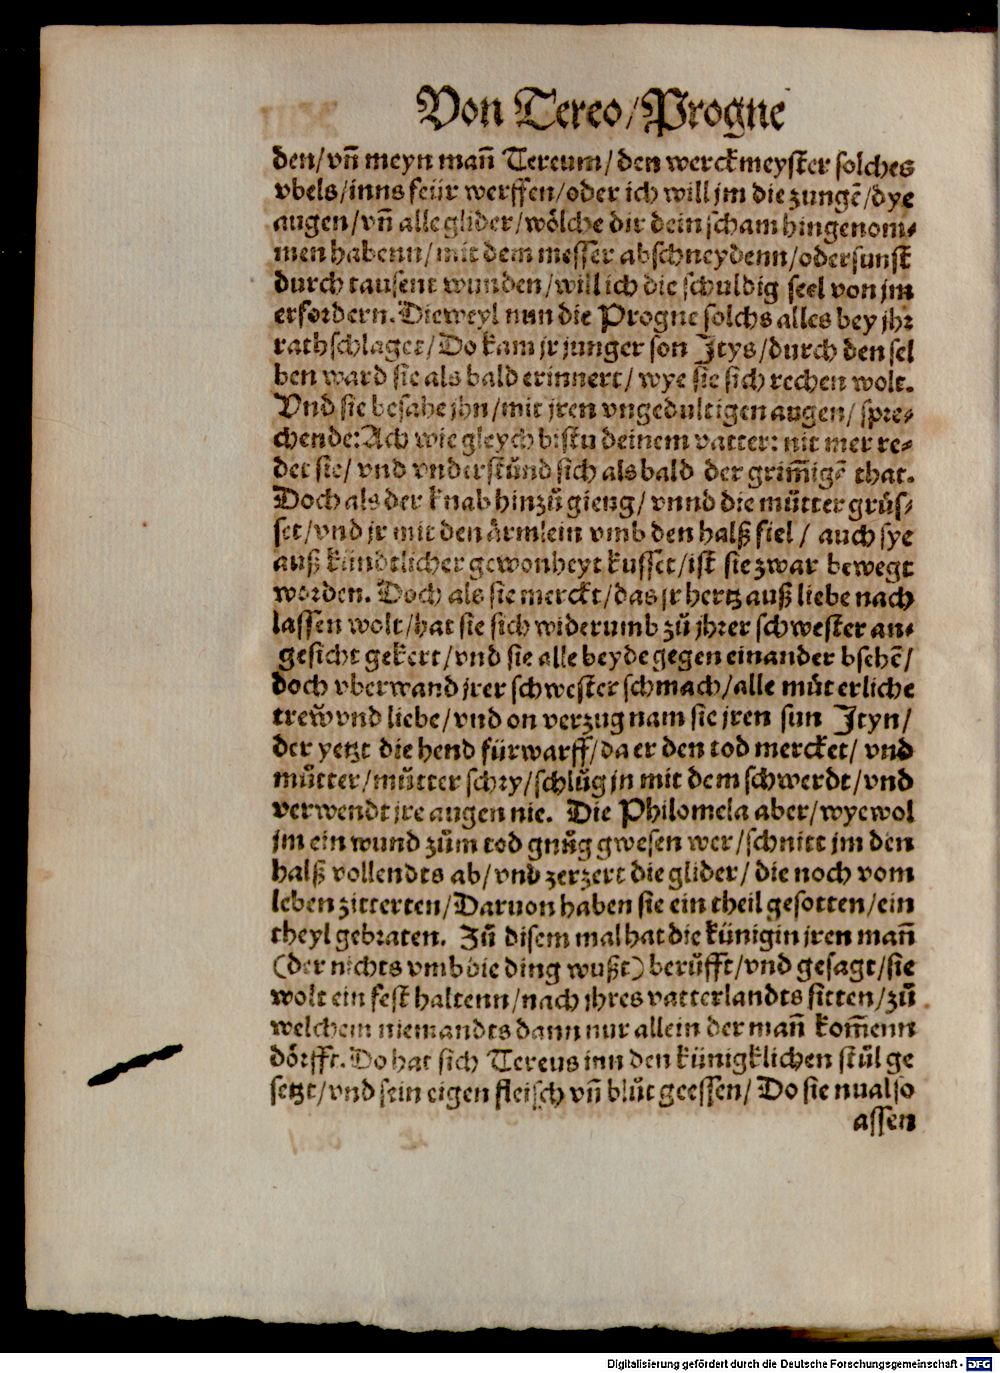 Von Tereo/Progne
den/vn̄ meyn man̄ Tereum/den werckmeyster solches
vbels/inns feür werffen/oder ich will jm die zungẽ/dye
augen/vn̄ alle glider/wölche dir dein scham hingenom-
men habenn/mit dem messer abschneydenn/oder sunst
durch tausent wunden/will ich die schuldig seel von jm
erfordern. Dieweyl nun die Progne solchs alles bey jhr
rathschlaget/Do kam jr junger son Jtys/durch den sel
ben ward sie als bald erinnert/wye sie sich rechen wolt.
Vnd sie besahe jhn/mit jren vngedultigen augen/spre-
chende: Ach wie gleych bistu deinem vatter: nit mer re-
det sie/vnd vnderstůnd sich als bald der grim̄igẽ that.
Doch als der knab hinzů gieng/vnnd die můtter grüs-
set/vnd jr mit den ärmlein vmb den halß fiel/ auch sye
auß kündtlicher gewonheyt kusset/ist sie zwar bewegt
worden. Doch als sie merckt/das jr hertz auß liebe nach
lassen wolt/hat sie sich widerumb zů jhrer schwester an-
gesicht gekert/vnd sie alle beyde gegen einander bsehẽ/
doch vberwand jrer schwester schmach/alle můterliche
trew̃ vnd liebe/vnd on verzug nam sie jren sun Jtyn/
der yetzt die hend fürwarff/da er den tod mercket/ vnd
můtter/můtter schry/schlůg jn mit dem schwerdt/vnd
verwendt jre augen nie. Die Philomela aber/wyewol
jm ein wund zům tod gnůg gwesen wer/schnitt jm den
halß vollendts ab/vnd zerzert die glider/ die noch vom
leben zitterten/Daruon haben sie ein theil gesotten/ein
theyl gebraten. Zů disem mal hat die künigin jren man̄
(der nichts vmb die ding wußt) berůfft/vnd gesagt/sie
wolt ein fest haltenn/nach jhres vatterlandts sitten/zů
welchem niemandts dann nur allein der man̄ kom̄enn
dörfft. Do hat sich Tereus inn den künigklichen stůl ge
setzt/vnd sein eigen fleisch vn̄ blůt geessen/ Do sie nu also
assen
Digitalisierung gefördert durch die Deutsche Forschungsgemeinschaft - DFG